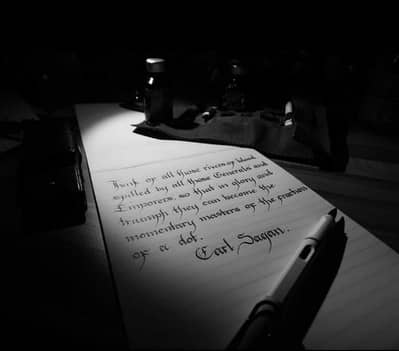 Think of all those rivers of blood
spilled by all those Generals and
Emporers, so that in glory and
triumph they can become the
momentary masters of the fraction
of a dot.
Carl Sagan.